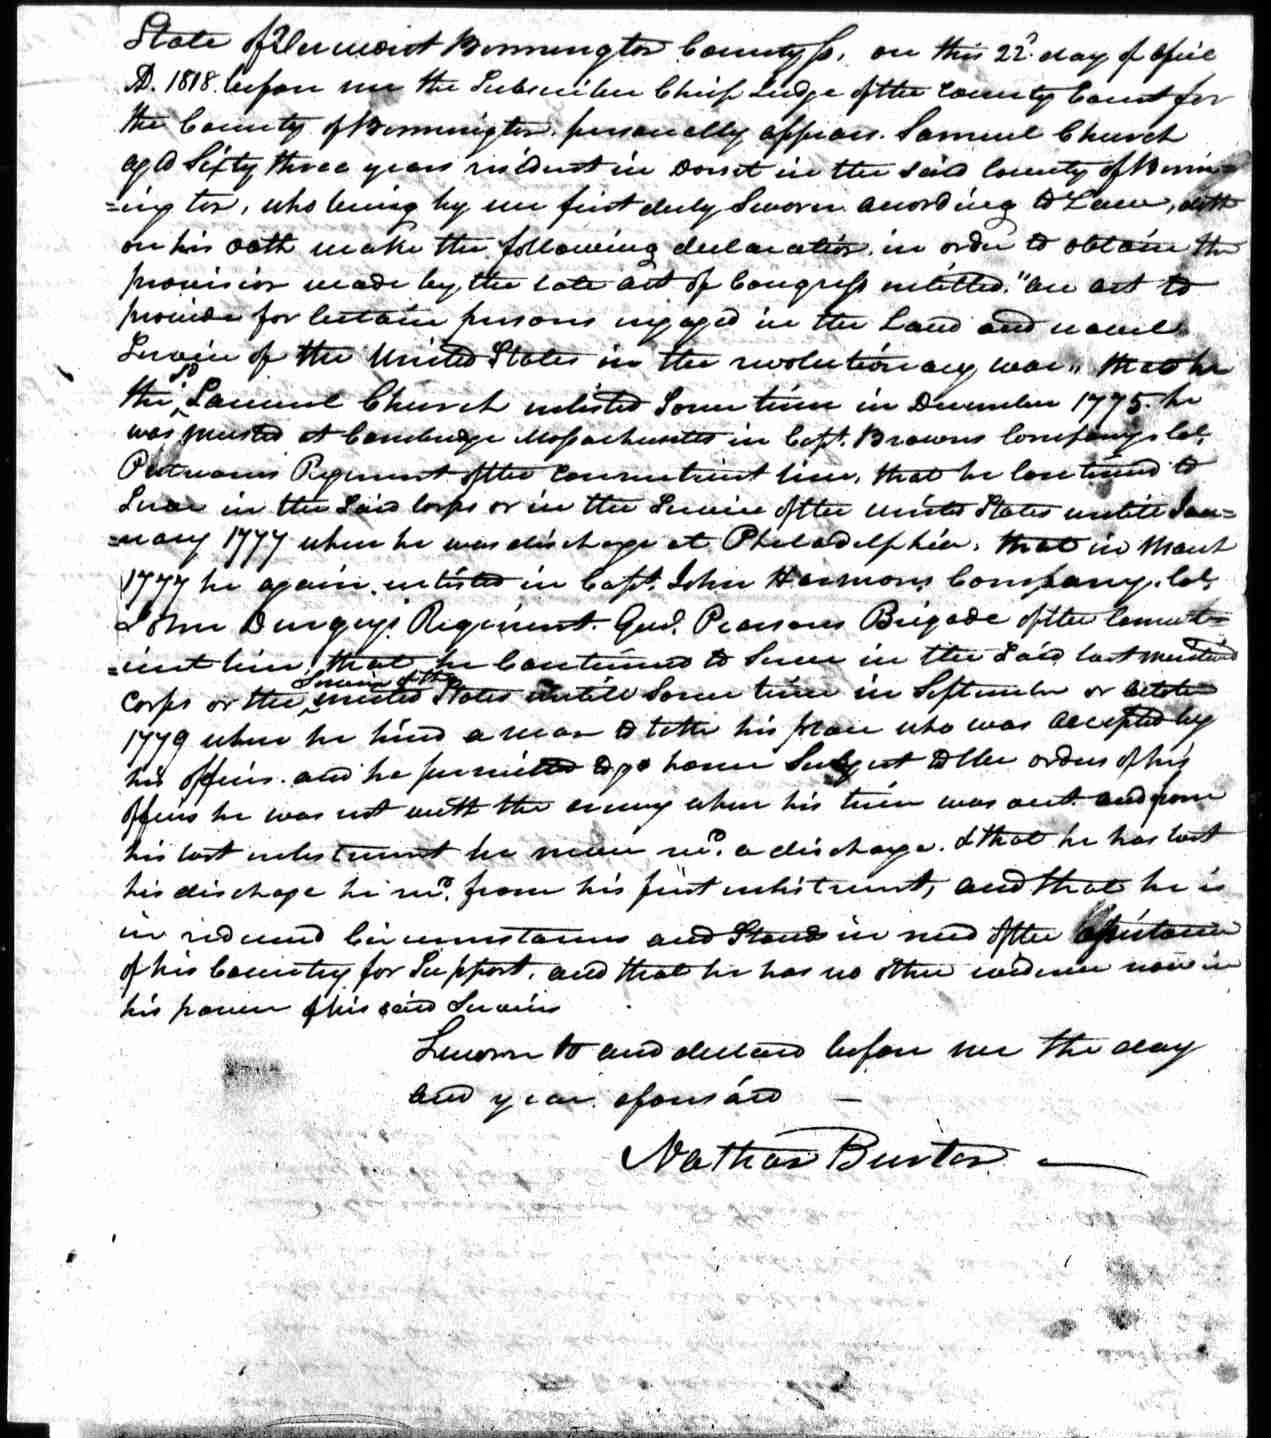 State of Vermont Bennington County ss, on this 22d day of April
AD. 1818. before me the Subscriber Chief Judge of the County Court for
the County of Bennington. personally appears. Samuel Church
aged Sixty three years resident in Dorset in the said County of Benn=
=ington, who being by me first duly Sworn according to Law, doth
on his oath make the following declaration in order to obtain the
provision made by the late act of Congress entitled. "an act to
provide for certain persons engaged in the Land and naval
Service of the United States in the revolutionary war" that he
the sd Samuel Church enlisted Some time in December 1775. he
was musted at Cambridge Massachusetts in Capt. Browns Company Col.
Putnams Regiment of the Connecticut line, that he continued to
Serve in the said Corps or in the Service of the united States untill Jan=
=uary 1777 when he was discharge at Philadelphia. that in March
1777 he again enlisted in Capt. John Harmons Company. Col.
John Durgeys Regiment. Genl. Pearsons Brigade of the Connect=
=icut line, that he Continued to Serve in the said last mentiond
Corps or the Service of the united States untill Some time in September or October
1779 when he hired a man to take his place who was accepted by
his officers. and he permitted to go home Subject to the orders of his
officers he was not with the army when his time was out. and from
his last enlistment he never recd. a discharge. & that he has lost
his discharge he recd. from his first enlistment, and that he is
in reduced Circumstances and Stands in need of the assistance
of his Country for Support. and that he has no other evidence now in
his power of his said Services
Sworn to and declared before me the day
and year aforesaid —
Nathan Burton —